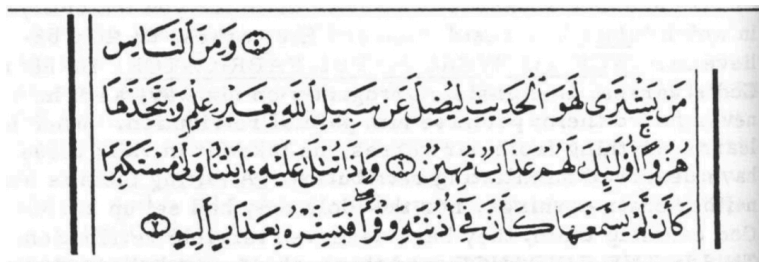 ۝ وَمِنَ ٱلنَّاسِ
مَن يَشْتَرِى لَهْوَ ٱلْحَدِيثِ لِيُضِلَّ عَن سَبِيلِ ٱللَّهِ بِغَيْرِ عِلْمٍ وَيَتَّخِذَهَا
هُزُوًا أُو۟لَٰٓئِكَ لَهُمْ عَذَابٌ مُّهِينٌ ۝٦ وَإِذَا تُتْلَىٰ عَلَيْهِ ءَايَٰتُنَا وَلَّىٰ مُسْتَكْبِرًا
كَأَن لَّمْ يَسْمَعْهَا كَأَنَّ فِىٓ أُذُنَيْهِ وَقْرًا فَبَشِّرْهُ بِعَذَابٍ أَلِيمٍ ۝